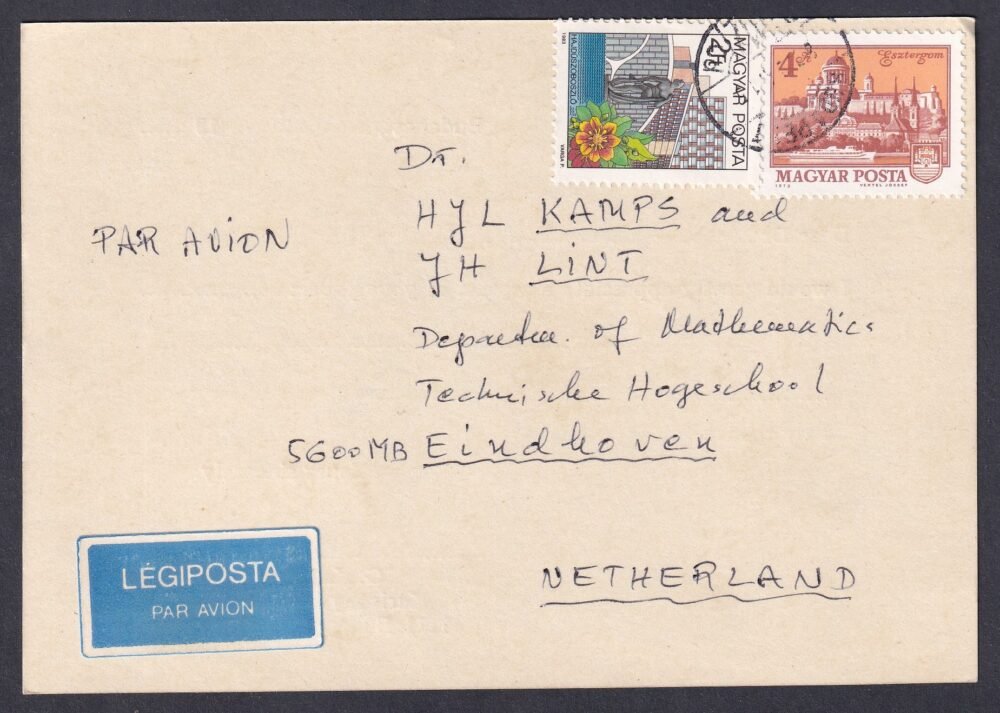 MAGYAR POSTA
2Ft
HAJDÚSZOBOSZLÓ
1983
VARGA P.
4Ft
Esztergom
MAGYAR POSTA
1973
VERTEL JÓZSEF
Dr.
HJL KAMPS and
PAR AVION
JH LINT
Departm. of Mathematics
Technische Hogeschool
5600MB Eindhoven
LÉGIPOSTA
PAR AVION
NETHERLAND